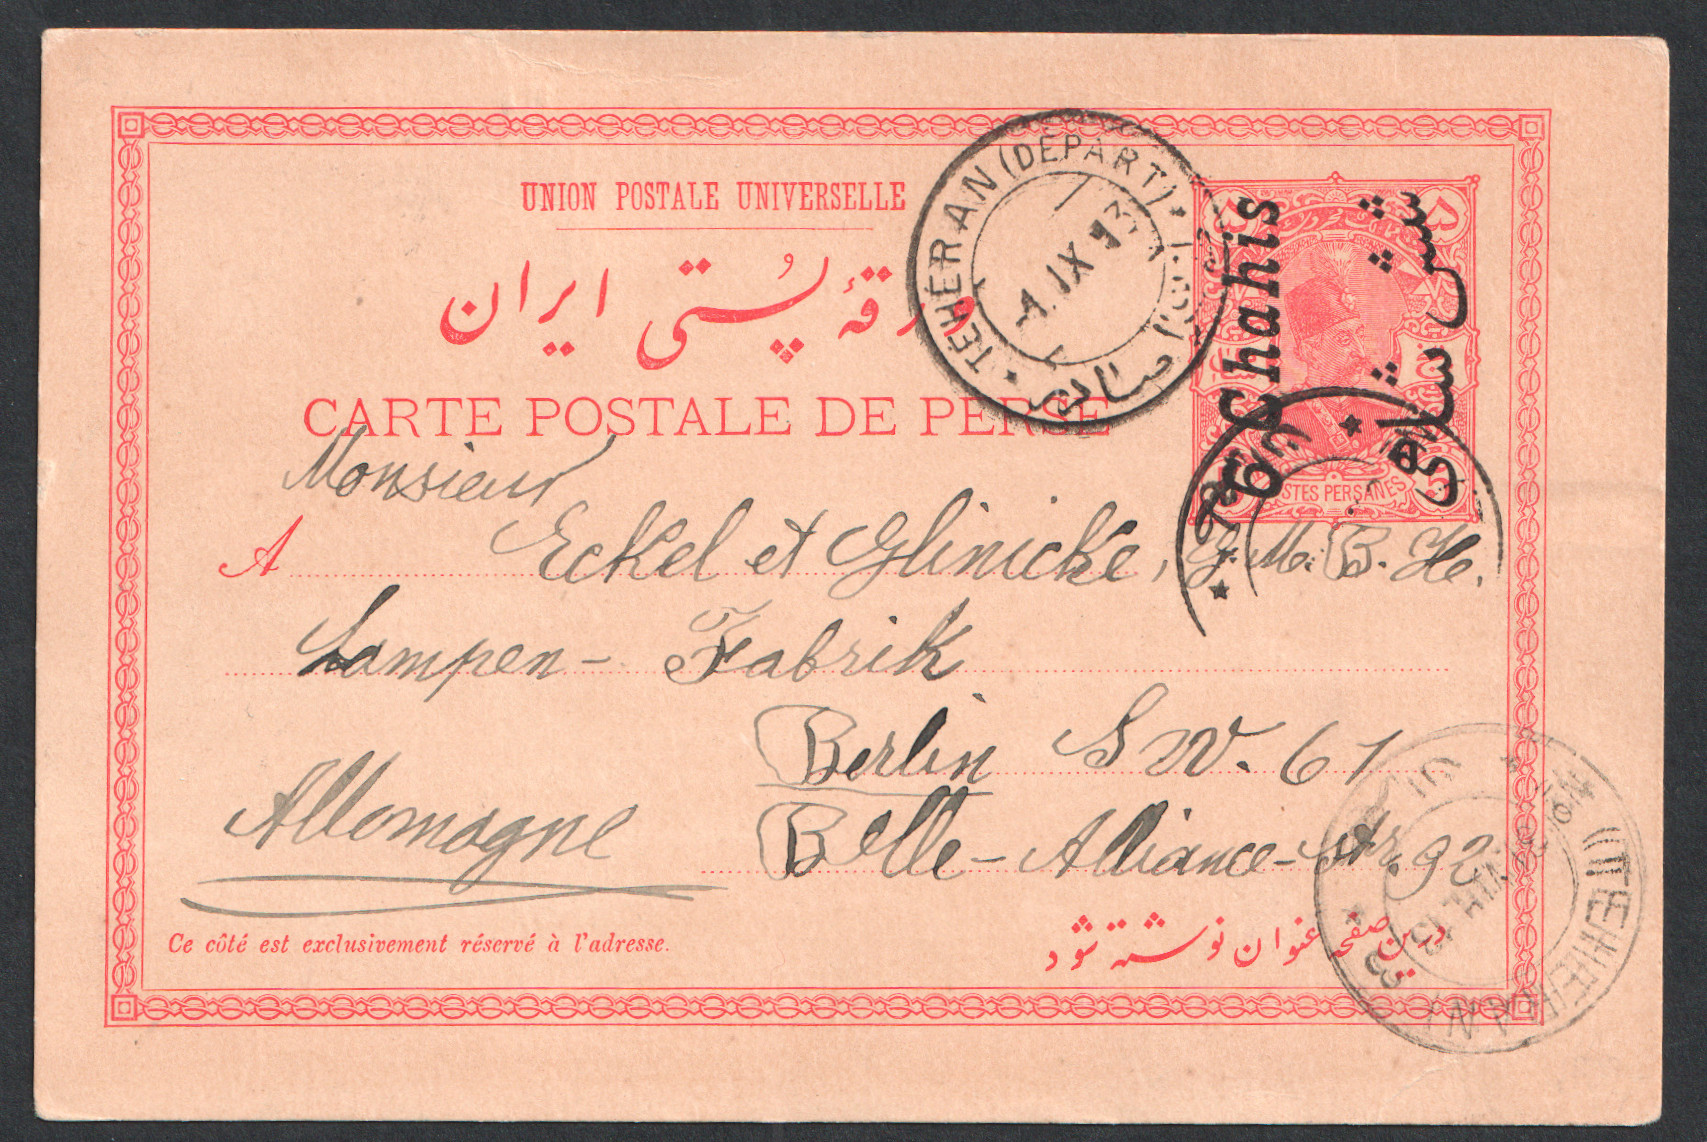 UNION POSTALE UNIVERSELLE
ورقهٔ پُستی ایران
CARTE POSTALE DE PERSE
* TÉHÉRAN (DÉPART) *
IX
6 Chahis
شش شاهی
POSTES PERSANES
Monsieur
A Eckel et Glinicke, G.M.B.H.
Lampen- Fabrik
Berlin SW. 61
Allemagne
Belle-Alliance-Str. 92
Ce côté est exclusivement réservé à l'adresse.
درین صفحه عنوان نوشته شود
(TEHERAN)